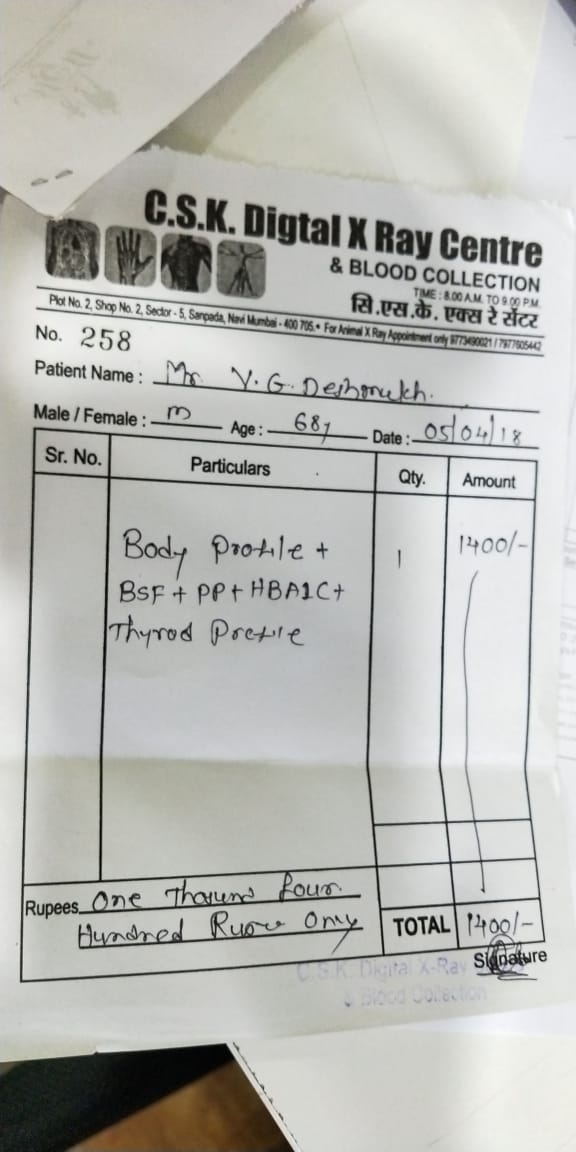 C.S.K. Digtal X Ray Centre
& BLOOD COLLECTION
TIME : 8.00 A.M. TO 9.00 P.M.
सि.एस.के. एक्स रे सेंटर
Plot No. 2, Shop No. 2, Sector - 5, Sanpada, Navi Mumbai - 400 705. • For Animal X Ray Appointment only 9773490021 / 7977605442
No. 258
Patient Name : Mr V.G. Deshmukh.
Male / Female : m Age : 68y Date : 05/04/18
Sr. No. Particulars Qty. Amount
Body Profile + 1 1400/-
BSF + PP + HBA1C +
Thyrod Profile
Rupees One Thousand four
Hundred Rupee Only TOTAL 1400/-
Signature
C.S.K. Digital X-Ray
& Blood Collection